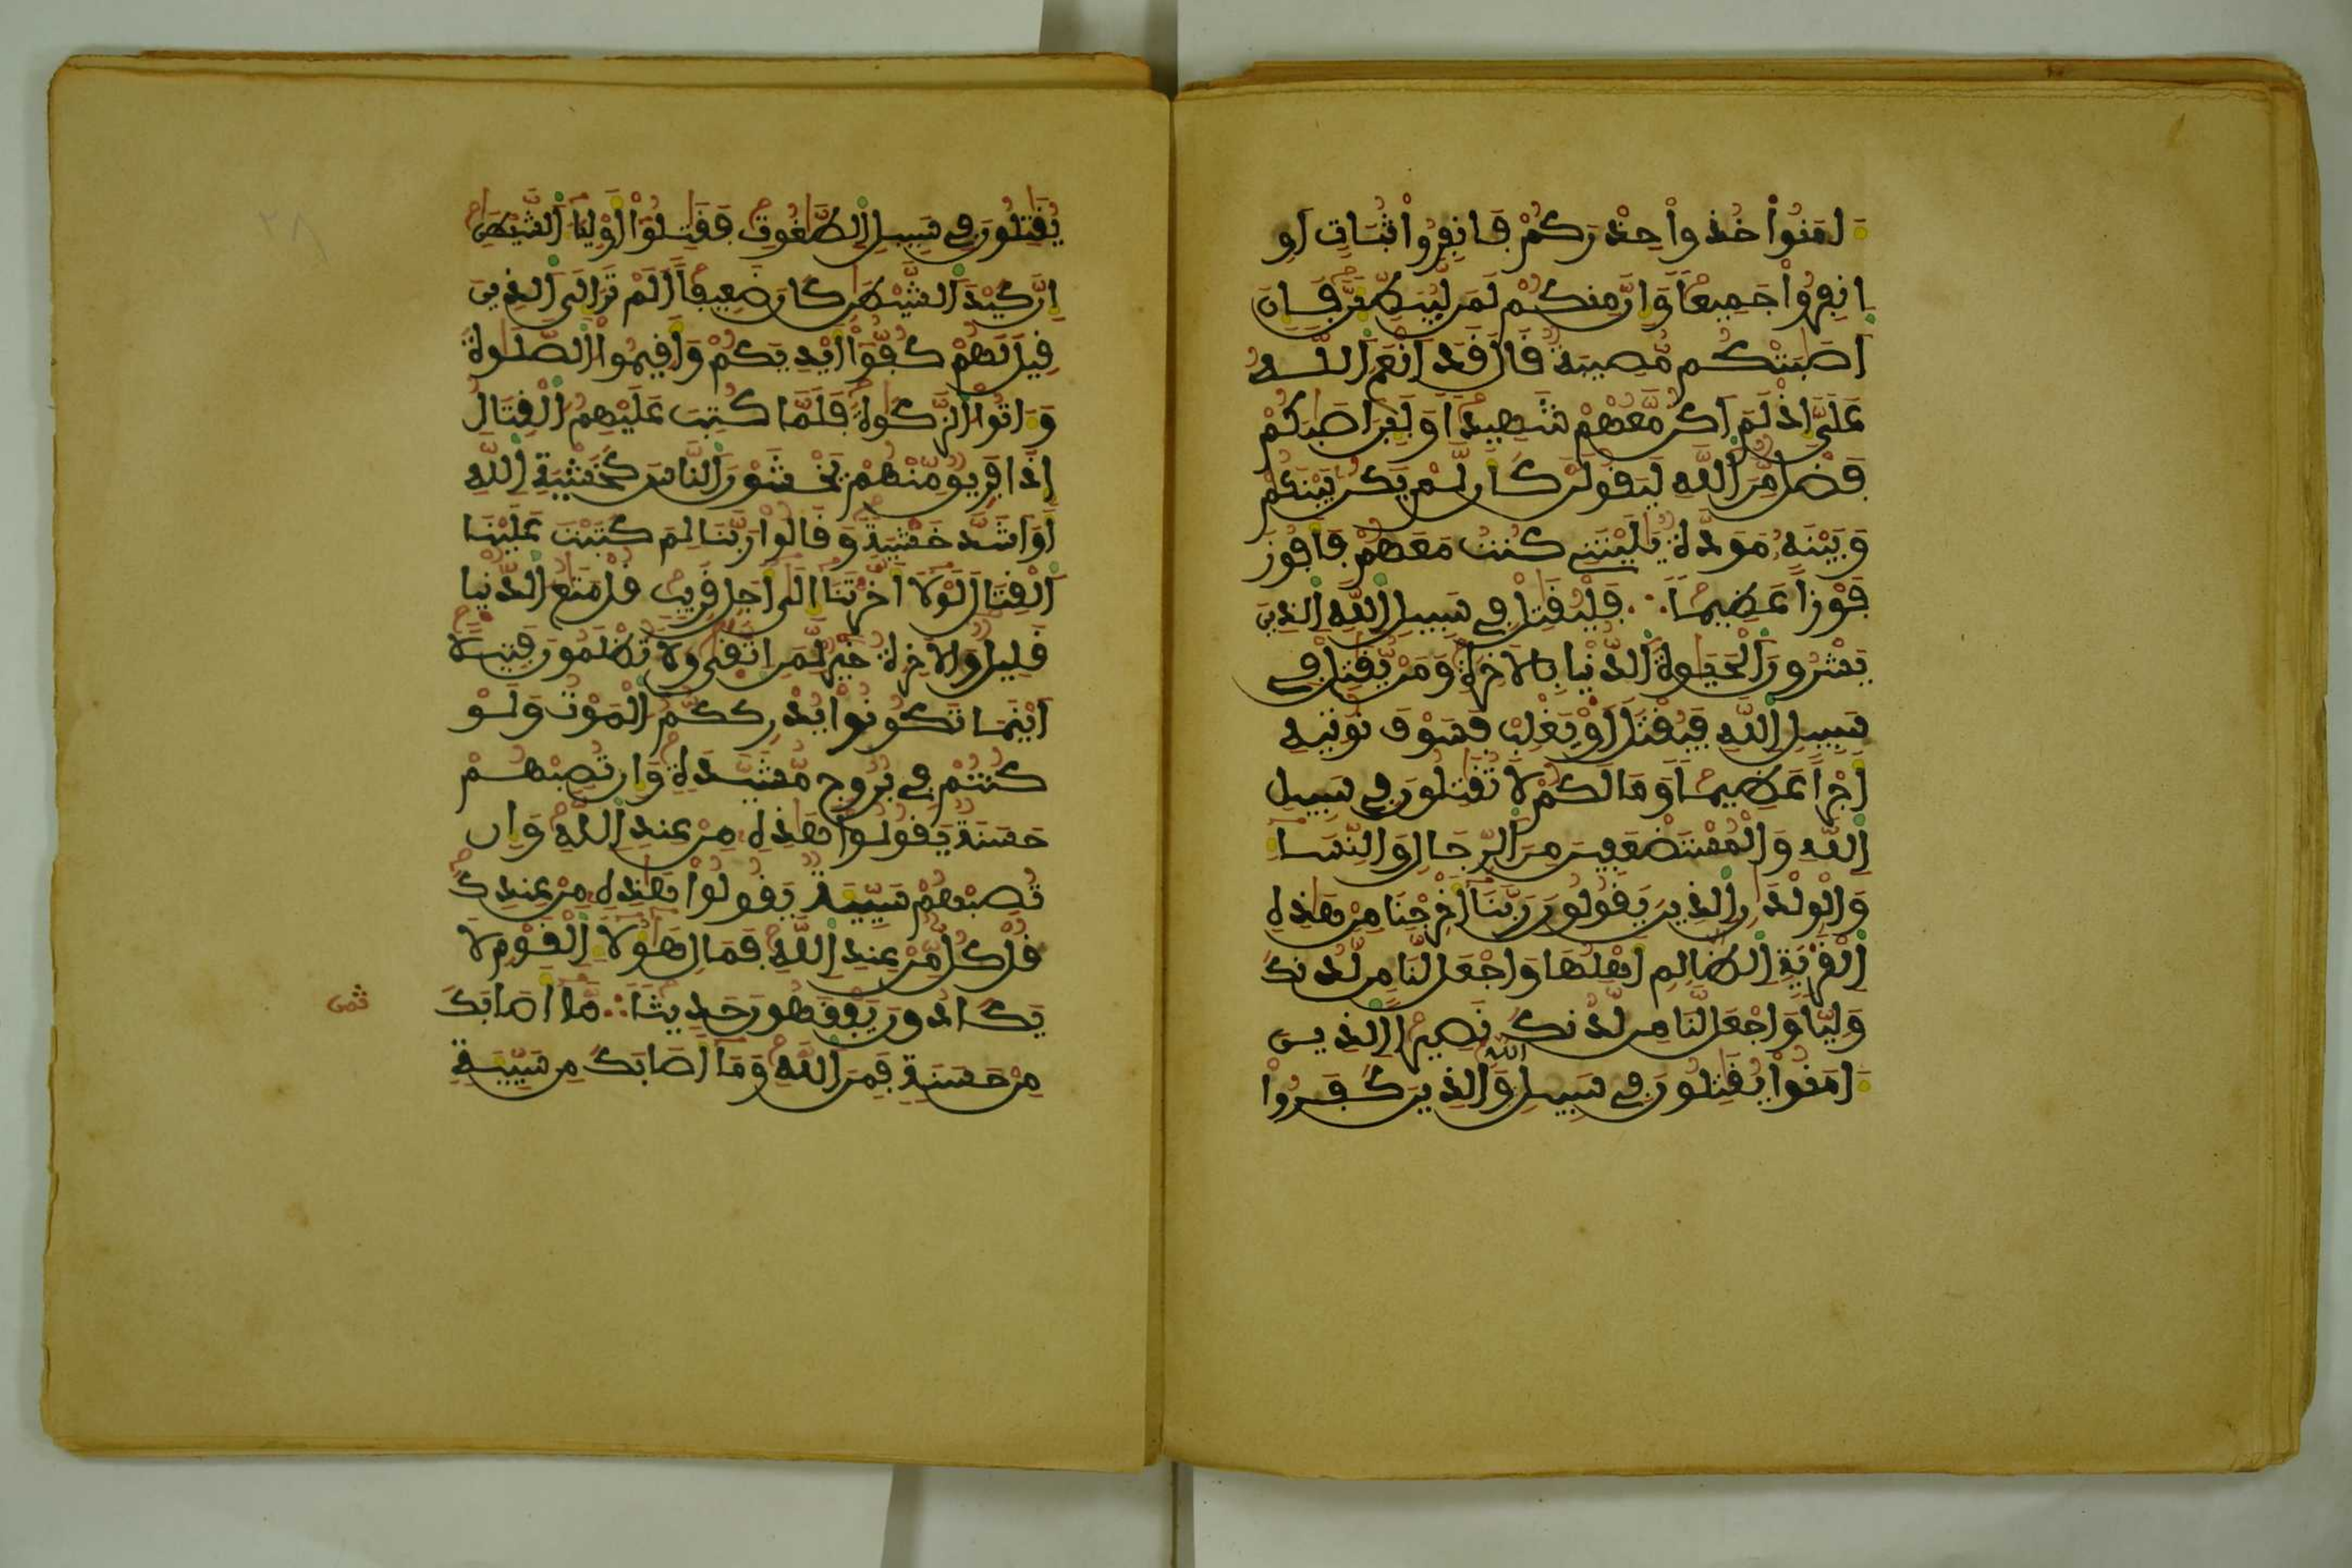 ءامَنُواْ خُذُواْ حِذْرَكُمْ فَانفِرُواْ ثُبَاتٍ اَوِ
اِنفِرُواْ جَمِيعاً وَإِنَّ مِنكُمْ لَمَن لَّيُبَطِّئَنَّ فَإِنَ
اَصَٰبَتْكُم مُّصِيبَةٌ قَالَ قَدَ اَنْعَمَ اَللَّهُ
عَلَىَّ إِذْ لَمَ اَكُن مَّعَهُمْ شَهِيداً وَلَئِنَ اَصَٰبَكُمْ
فَضْلٌ مِّنَ اَللَّهِ لَيَقُولَنَّ كَأَن لَّمْ يَكُن بَيْنَكُمْ
وَبَيْنَهُ مَوَدَّةٌ يَٰلَيْتَنِے كُنتُ مَعَهُمْ فَأَفُوزَ
فَوْزاً عَظِيماً ∴ فَلْيُقَٰتِلْ فِے سَبِيلِ اِللَّهِ اِلذِينَ
يَشْرُونَ اَلْحَيَوٰةَ اَلدُّنْيا بِالاَخِرَةِ وَمَنْ يُّقَٰتِلْ فِے
سَبِيلِ اِللَّهِ فَيُقْتَلَ اَوْ يَغْلِبْ فَسَوْفَ نُوتِيهِ
أَجْراً عَظِيماً وَمَا لَكُمْ لاَ تُقَٰتِلُونَ فِے سَبِيلِ
اِللَّهِ وَالْمُسْتَضْعَفِينَ مِنَ اَلرِّجَالِ وَالنِّسَا
وَالْوِلْدَٰنِ اِلذِينَ يَقُولُونَ رَبَّنَا أَخْرِجْنَا مِنْ هَٰذِهِ
اِلْقَرْيَةِ اِلظَّالِمِ أَهْلُهَا وَاجْعَل لَّنَا مِن لَّدُنكَ
وَلِيّاً وَاجْعَل لَّنَا مِن لَّدُنكَ نَصِيراً اِلذِينَ
ءامَنُواْ يُقَٰتِلُونَ فِے سَبِيلِ اللَّهِ وَالذِينَ كَفَرُواْ
يُقَٰتِلُونَ فِے سَبِيلِ اِلطَّٰغُوتِ فَقَٰتِلُواْ أَوْلِيَا اَلشَّيْطَٰنِ
إِنَّ كَيْدَ اَلشَّيْطَٰنِ كَانَ ضَعِيفاً اَلَمْ تَرَ إِلَى اَلذِينَ
قِيلَ لَهُمْ كُفُّواْ أَيْدِيَكُمْ وَأَقِيمُواْ اَلصَّلَوٰةَ
وَءاتُواْ اَلزَّكَوٰةَ فَلَمَّا كُتِبَ عَلَيْهِمُ اَلْقِتَالُ
إِذَا فَرِيقٌ مِّنْهُمْ يَخْشَوْنَ اَلنَّاسَ كَخَشْيَةِ اِللَّهِ
أَوَ اَشَدَّ خَشْيَةً وَقَالُواْ رَبَّنَا لِمَ كَتَبْتَ عَلَيْنَا
اَلْقِتَالَ لَوْلاَ أَخَّرْتَنَا إِلَىٰ أَجَلٍ قَرِيبٍ قُلْ مَتَٰعُ اُلدُّنْيا
قَلِيلٌ وَالاَخِرَةُ خَيْرٌ لِّمَنِ اِتَّقَىٰ وَلاَ تُظْلَمُونَ فَتِيلاً
اَيْنَمَا تَكُونُواْ يُدْرِككُّمُ اُلْمَوْتُ وَلَوْ
كُنتُمْ فِے بُرُوجٍ مُّشَيَّدَةٍ وَإِن تُصِبْهُمْ
حَسَنَةٌ يَقُولُواْ هَٰذِهِ مِنْ عِندِ اِللَّهِ وَإِن
تُصِبْهُمْ سَيِّيَةٌ يَقُولُواْ هَٰذِهِ مِنْ عِندِكَ
قُلْ كُلٌّ مِّنْ عِندِ اِللَّهِ فَمَالِ هَٰؤُلَا اِلْقَوْمِ لاَ
يَكَادُونَ يَفْقَهُونَ حَدِيثاً ∴ مَّا أَصَابَكَ
مِنْ حَسَنَةٍ فَمِنَ اَللَّهِ وَمَا أَصَابَكَ مِن سَيِّيَةٍ
ثمن